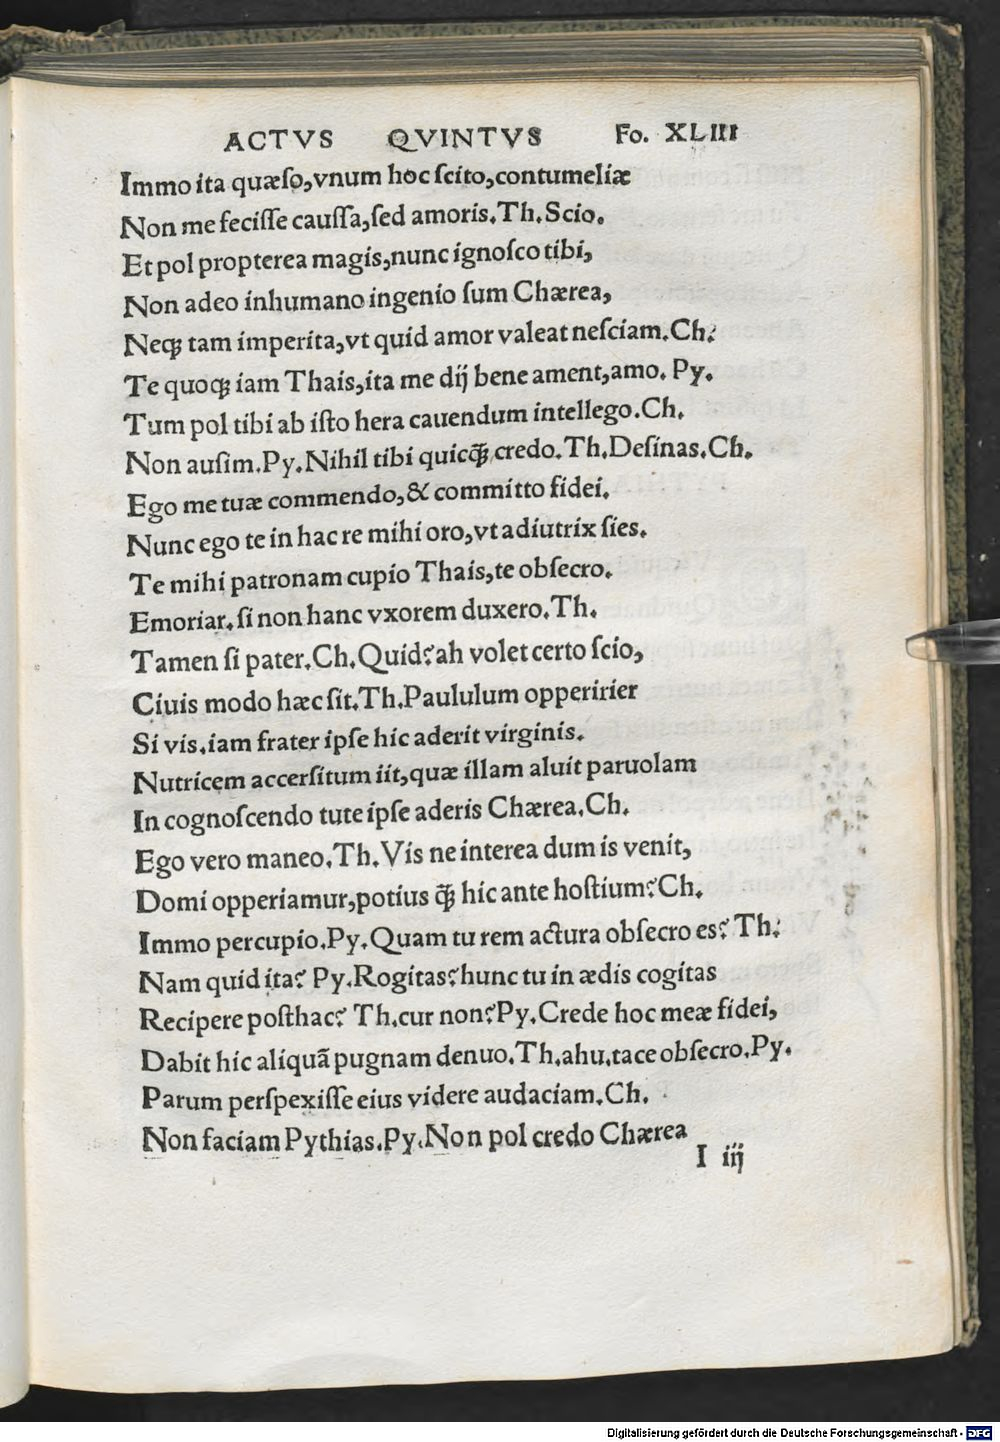 ACTVS QVINTVS Fo. XLIII
Immo ita quæſo,vnum hoc ſcito,contumeliæ
Non me feciſſe cauſſa,ſed amoris.Th.Scio.
Et pol propterea magis,nunc ignoſco tibi,
Non adeo inhumano ingenio ſum Chærea,
Neqꝫ tam imperita,vt quid amor valeat neſciam.Ch:
Te quoqꝫ iam Thais,ita me dij bene ament,amo. Py.
Tum pol tibi ab iſto hera cauendum intellego.Ch.
Non auſim.Py.Nihil tibi quicq̃ꝫ credo.Th.Deſinas.Ch.
Ego me tuæ commendo,& committo fidei.
Nunc ego te in hac re mihi oro,vt adiutrix ſies.
Te mihi patronam cupio Thais,te obſecro.
Emoriar.ſi non hanc vxorem duxero.Th.
Tamen ſi pater.Ch.Quid?ah volet certo ſcio,
Ciuis modo hæc ſit.Th.Paululum opperirier
Si vis.iam frater ipſe hic aderit virginis.
Nutricem accerſitum iit,quæ illam aluit paruolam
In cognoſcendo tute ipſe aderis Chærea.Ch.
Ego vero maneo.Th.Vis ne interea dum is venit,
Domi opperiamur,potius q̃ꝫ hic ante hoſtium?Ch.
Immo percupio.Py.Quam tu rem actura obſecro es? Th:
Nam quid ita? Py.Rogitas?hunc tu in ædis cogitas
Recipere poſthac? Th.cur non?Py.Crede hoc meæ fidei,
Dabit hic aliquã pugnam denuo.Th.ahu.tace obſecro.Py.
Parum perſpexiſſe eius videre audaciam.Ch.
Non faciam Pythias.Py.Non pol credo Chærea
I iij
Digitalisierung gefördert durch die Deutsche Forschungsgemeinschaft - DFG